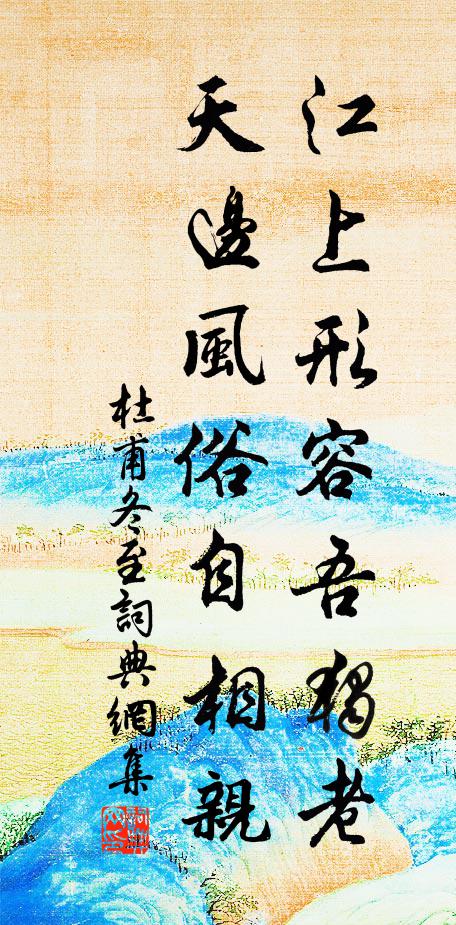 江上形容吾獨老
天邊風俗自相親
杜甫冬至詞典網集